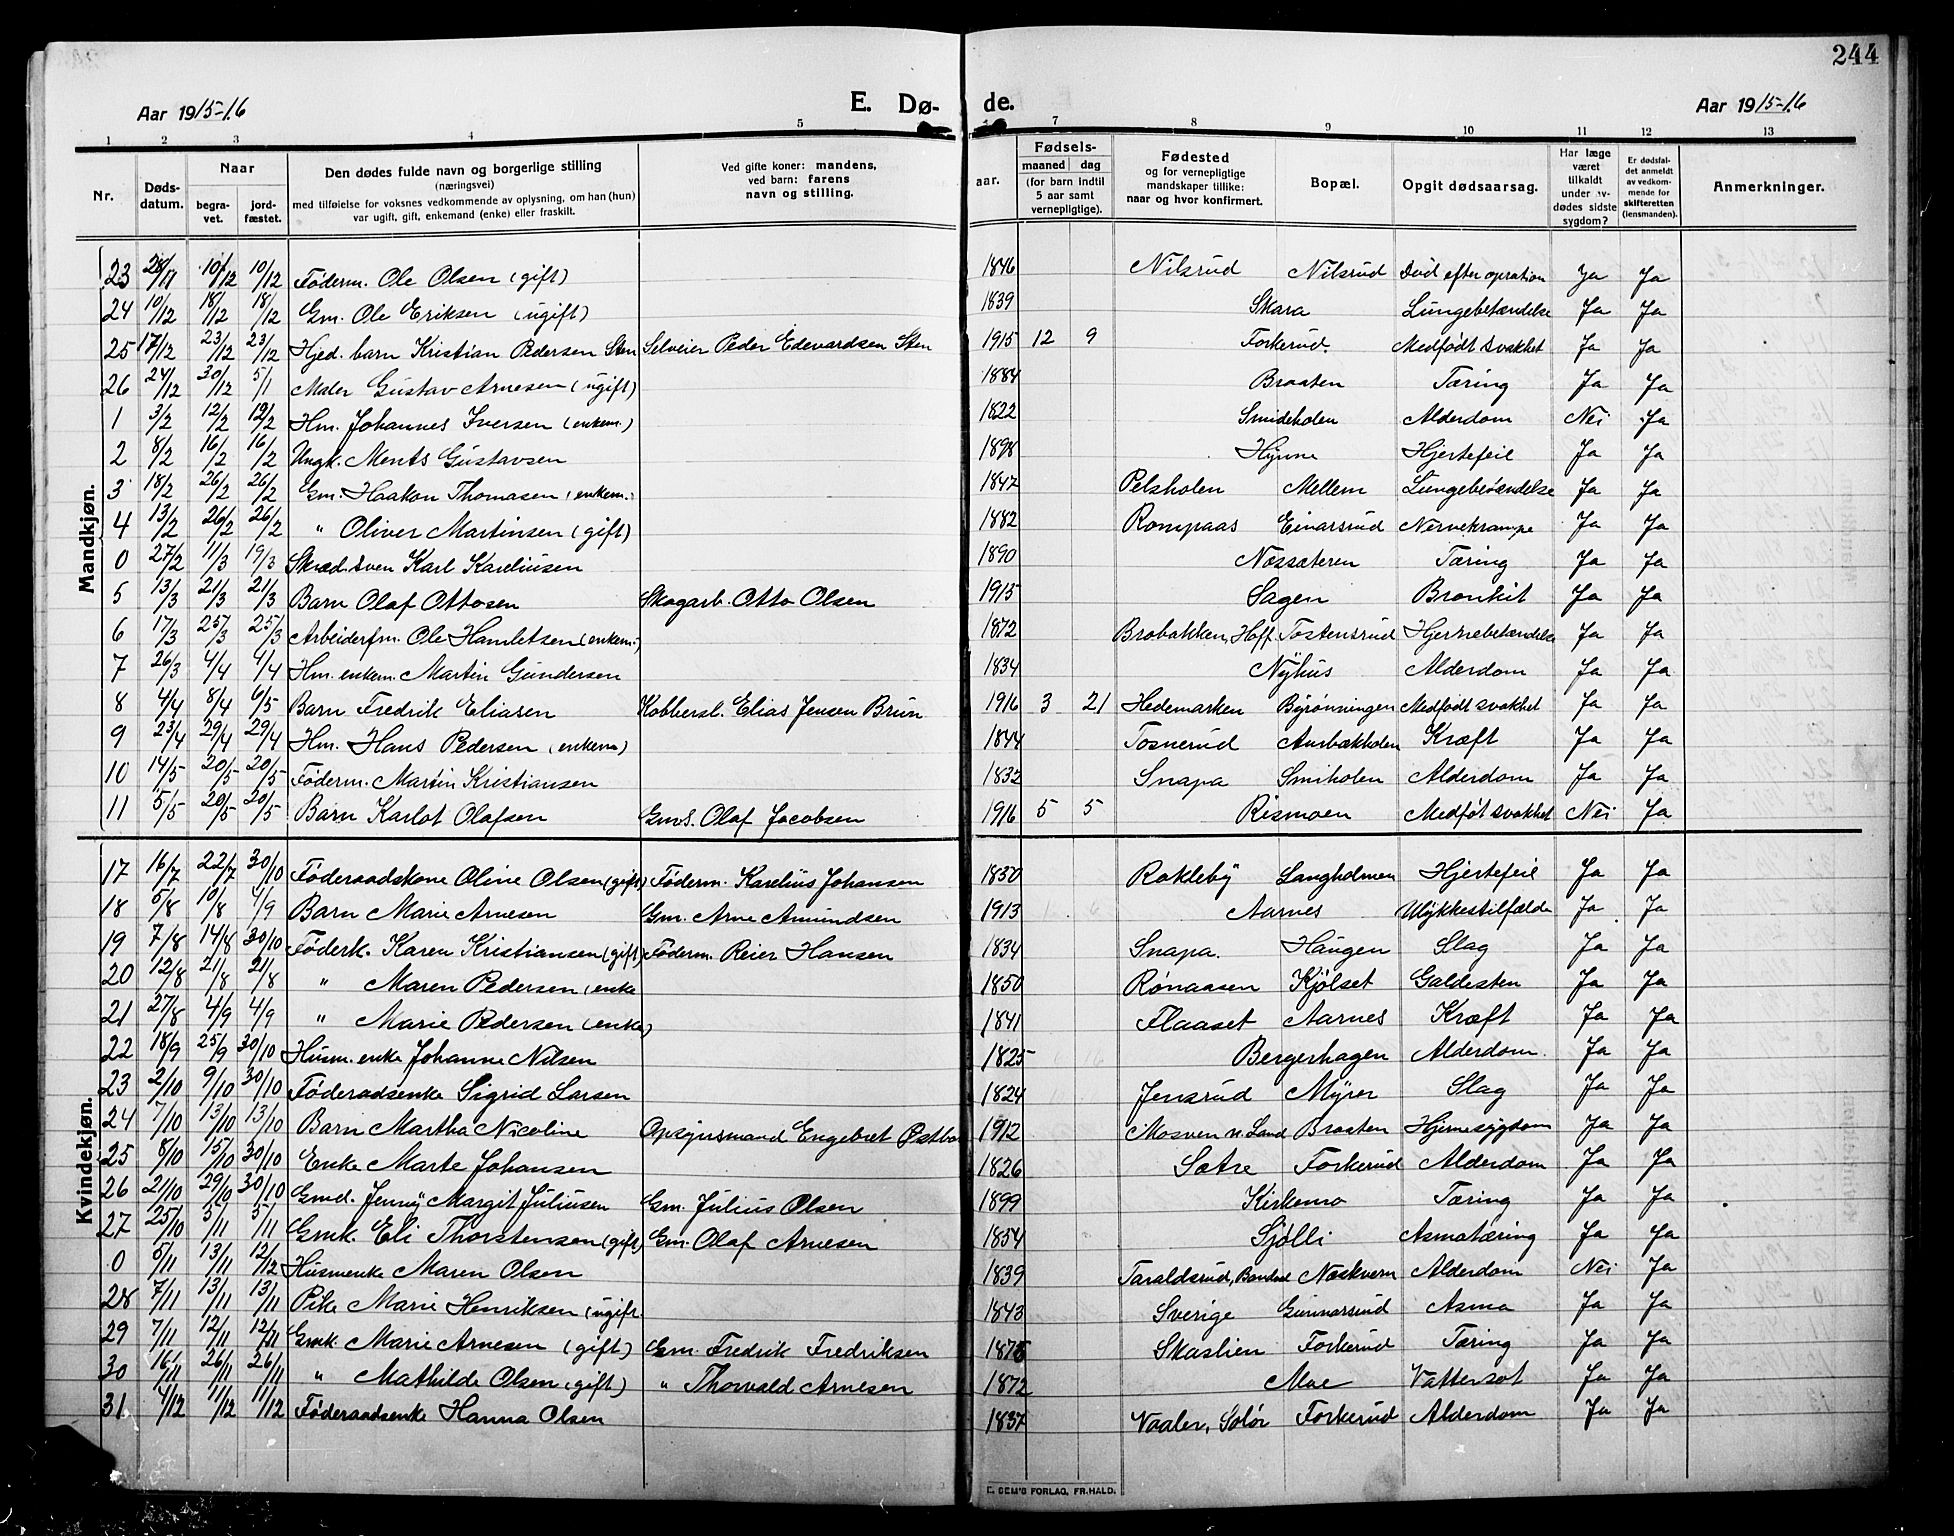 244
Aar 1915-16 E. Dø- de. Aar 1915-16
1 2 3 4 5 7 8 9 10 11 12 13
Nr. Døds-datum. Naar begra-vet. jord-fæstet. Den dødes fulde navn og borgerlige stilling (næringsvei) med tilføielse for voksnes vedkommende av oplysning, om han (hun) var ugift, gift, enkemand (enke) eller fraskilt. Ved gifte koner: mandens, ved barn: farens navn og stilling. aar. Fødsels- maaned dag (for barn indtil 5 aar samt vernepligtige). Fødested og for vernepligtige mandskaper tillike: naar og hvor konfirmert. Bopæl. Opgit dødsaarsag. Har læge været tilkaldt under av-dødes sidste sygdom? Er dødsfal-det anmeldt av vedkom-mende for skifteretten (lensmanden). Anmerkninger.
Mandkjøn.
23 28/11 10/12 10/12 Føderm. Ole Olsen (gift) 1846 Nilsrud Nilsrud Død efter operation Ja Ja
24 10/12 18/12 18/12 Gm. Ole Eriksen (ugift) 1839 Skara Lungebetændelse Ja Ja
25 17/12 23/12 23/12 Hjed. barn Kristian Pedersen Sten Selveier Peder Edevardsen Sten 1915 12 9 Forkerud. Medfødt svakhet Ja Ja
26 24/12 30/12 5/1 Maler Gustav Arnesen (ugift) 1884 Braaten Tæring Ja Ja
1 3/2 12/2 12/2 Hm. Johannes Iversen (enkem.) 1822 Smideholen Alderdom Nei Ja
2 8/2 16/2 16/2 Ungk. Ments Gustavsen 1898 Hynne Hjertefeil Ja Ja
3 18/2 26/2 26/2 Gm. Haakon Thomasen (enkem.) 1847 Pelsholen Mellem Lungebetændelse Ja Ja
4 13/2 26/2 26/2 " Oliver Martinsen (gift) 1882 Rompaas Einarsrud Nervekrampe Ja Ja
0 27/2 11/3 19/3 Skræd.sven Karl Kareliusen 1890 Næssæteren Tæring Ja Ja
5 13/3 21/3 21/3 Barn Olaf Ottosen Skogarb. Otto Olsen 1915 Sagen Bronkit Ja Ja
6 17/3 25/3 25/3 Arbeiderfm. Ole Hamletsen (enkem.) 1872 Brobakken, Hoff Tostensrud Hjernebetændelse Ja Ja
7 26/3 4/4 4/4 Hm. enkem. Martin Gundersen 1834 Nyhus Alderdom Ja Ja
8 4/4 8/4 6/5 Barn Fredrik Eliasen Kobbersl. Elias Jensen Brun 1916 3 21 Hedemarken Byrønningen Medfødt svakhet Ja Ja
9 23/4 29/4 29/4 Hm. Hans Pedersen (enkem) 1844 Tosnerud Aurbækholen Kræft Ja Ja
10 14/5 20/5 20/5 Føderm. Martin Kristiansen 1832 Snapa Smiholen Alderdom Ja Ja
11 5/5 20/5 20/5 Barn Karlot Olafsen Gms. Olaf Jacobsen 1916 5 5 Rismoen Medføt svakhet Nei Ja
Kvindekjøn.
17 16/7 22/7 30/10 Føderaadskone Oline Olsen (gift) Føderm. Karelius Johansen 1850 Rakleby Langholmen Hjertefeil Ja Ja
18 5/8 10/8 4/9 Barn Marie Arnesen Gm. Arne Amundsen 1913 1 6 Aarnes Ulykkestilfælde Ja Ja
19 7/8 14/8 30/10 Føderk. Karen Kristiansen (gift) Føderm. Reier Hansen 1834 Snapa. Haugen Slag Ja Ja
20 12/8 21/8 21/8 " Maren Pedersen (enke 1850 Rønaasen Kjølset Galdesten Ja Ja
21 27/8 4/9 4/9 " Marie Pedersen (enke) 1841 Flaaset Aarnes Kræft Ja Ja
22 18/9 25/9 30/10 Husm. enke Johanne Nilsen 1825 Bergerhagen Alderdom. Ja Ja
23 2/10 9/10 30/10 Føderaadsenke Sigrid Larsen 1824 Jensrud Myrer Slag Ja Ja
24 7/10 13/10 13/10 Barn Martha Nicoline Opsynsmand Engebret Østbo 1912 Mosven n. Land Braaten Hjernesygdom Ja Ja
25 8/10 15/10 30/10 Enke Marte Johansen 1826 Sætre Forkerud Alderdom Ja Ja
26 21/10 29/10 30/10 Gmd. Jenny Margit Juliusen Gm. Julius Olsen 1899 Kirkemo Tæring Ja Ja
27 25/10 5/11 5/11 Gmk. Eli Thorstensen (gift) Gm. Olaf Arnesen 1854 Sjølli Asmatæring Ja Ja
0 5/11 13/11 12/12 Husmenke Maren Olsen 1839 Taraldsrud, Næskvern Alderdom Nei Ja
28 7/11 13/11 13/11 Pike Marie Henriksen (ugift 1843 Sverige Gunnarsrud Asma Ja Ja
29 7/11 12/11 12/11 Gmk Marie Arnesen (gift) Gm. Fredrik Fredriksen 1875 Skaslien Forkerud Tæring Ja Ja
30 16/11 26/11 26/11 " Mathilde Olsen (gift) " Thorvald Arnesen 1872 Moe Vattersot Ja Ja
31 4/12 11/12 11/12 Føderaadsenke Hanna Olsen 1837 Vaaler, Solør Forkerud Alderdom Ja Ja
E. SEM'S FORLAG, FR.HALD.